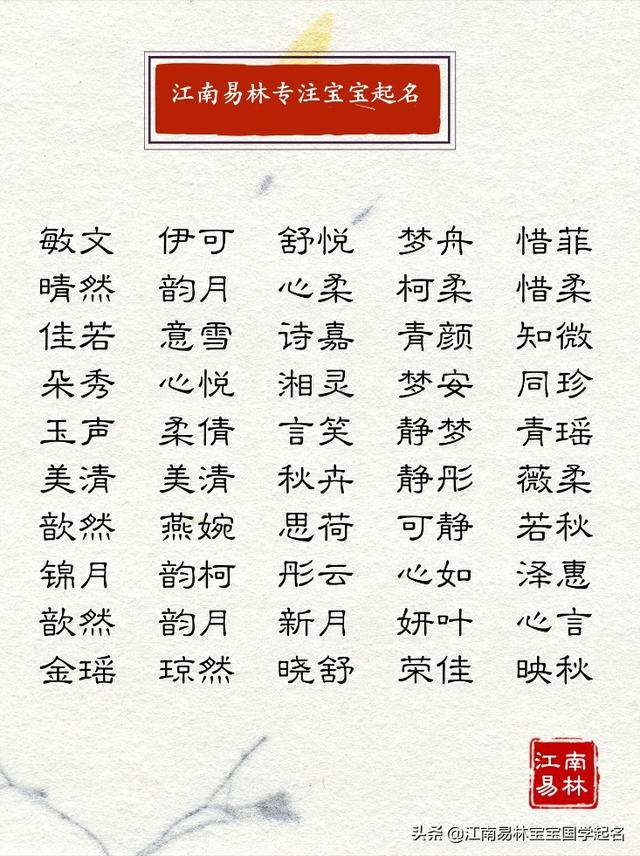 江南易林专注宝宝起名
敏文 伊可 舒悦 梦舟 惜菲
晴然 韵月 心柔 柯柔 惜柔
佳若 意雪 诗嘉 青颜 知微
朵秀 心悦 湘灵 梦安 同珍
玉声 柔倩 言笑 静梦 青瑶
美清 美清 秋卉 静彤 薇柔
歆然 燕婉 思荷 可静 若秋
锦月 韵柯 彤云 心如 泽惠
歆然 韵月 新月 妍叶 心言
金瑶 琼然 晓舒 荣佳 映秋
江南
易林
头条 @江南易林宝宝国学起名